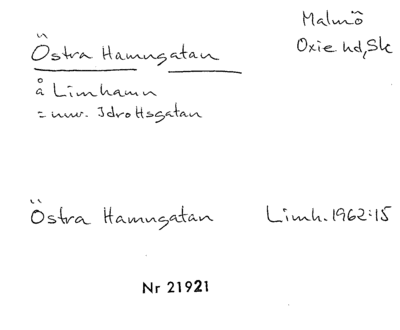 Östra Hamngatan
Malmö
Oxie hd, Sk
å Limhamn
= nuv. Idrottsgatan
Östra Hamngatan Limh. 1962:15
Nr 21921